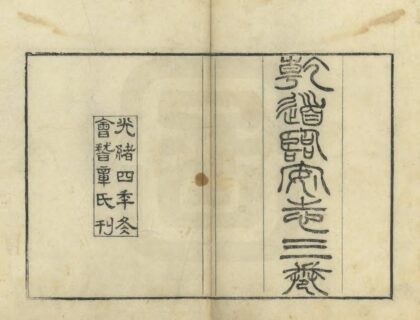 乾道臨安志三卷
光緒四季冬
會稽章氏刊